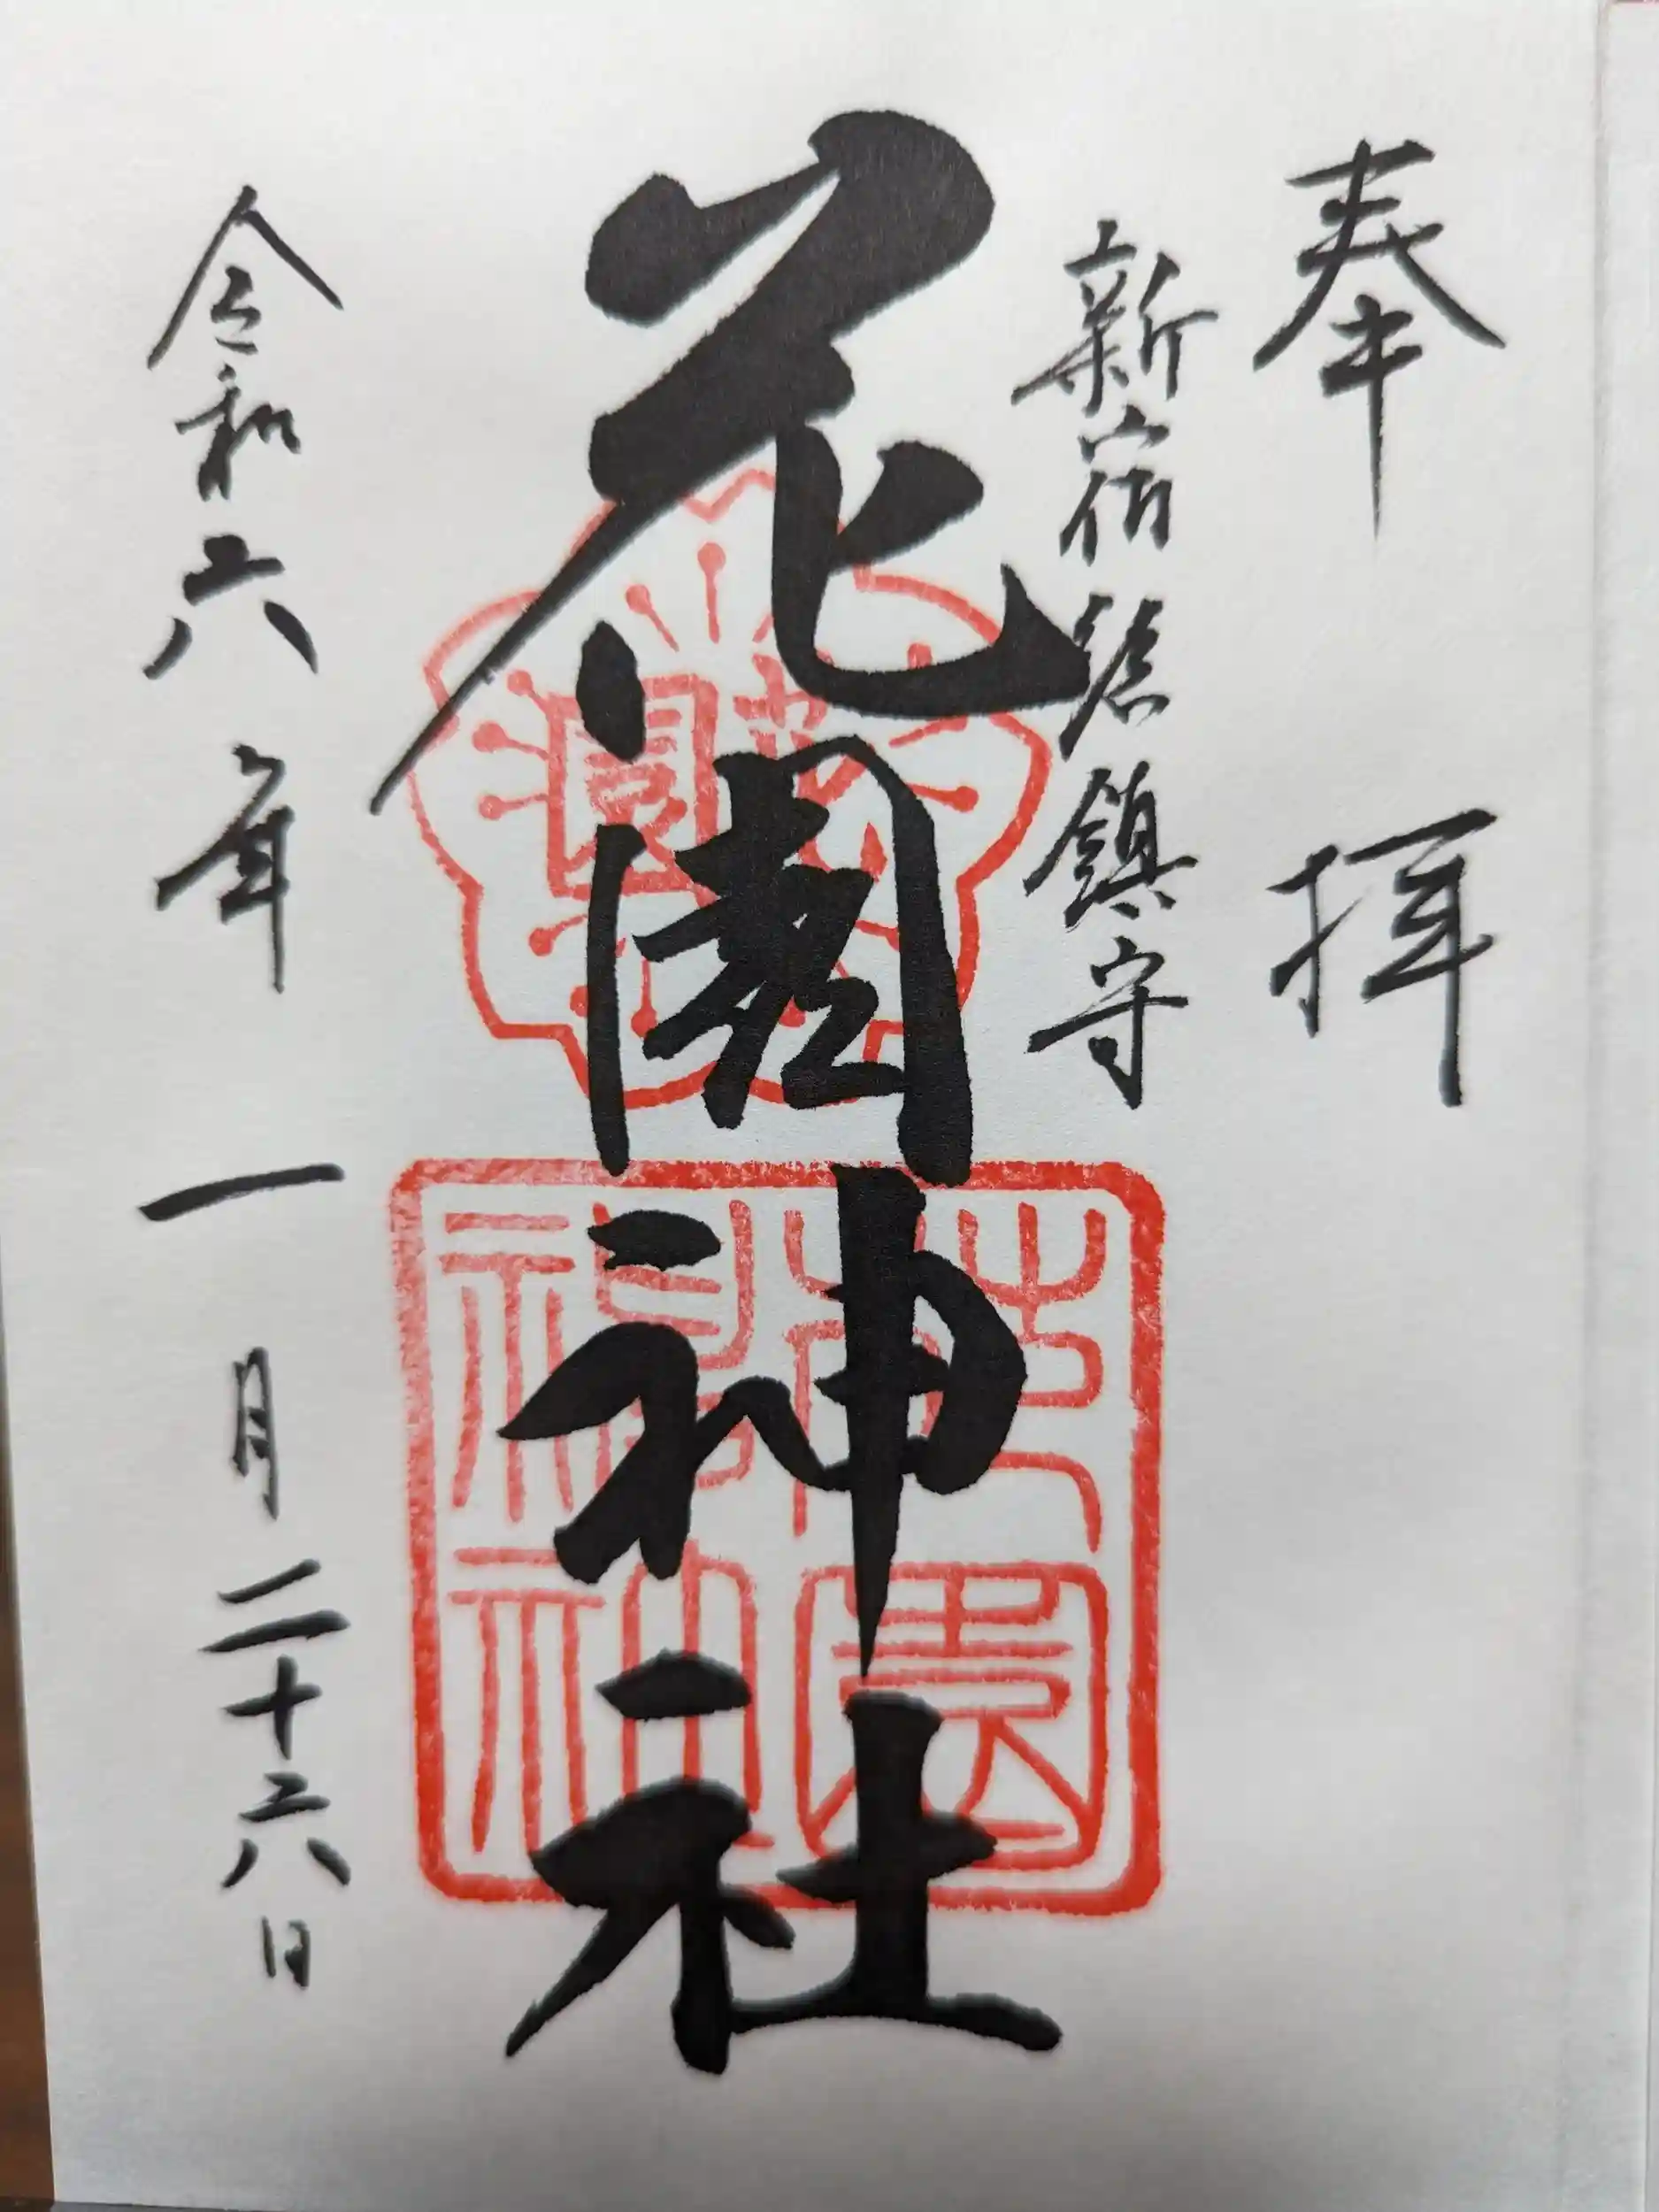 奉拝
新宿総鎮守
花園神社
花園
花園神社
令和六年一月二十六日